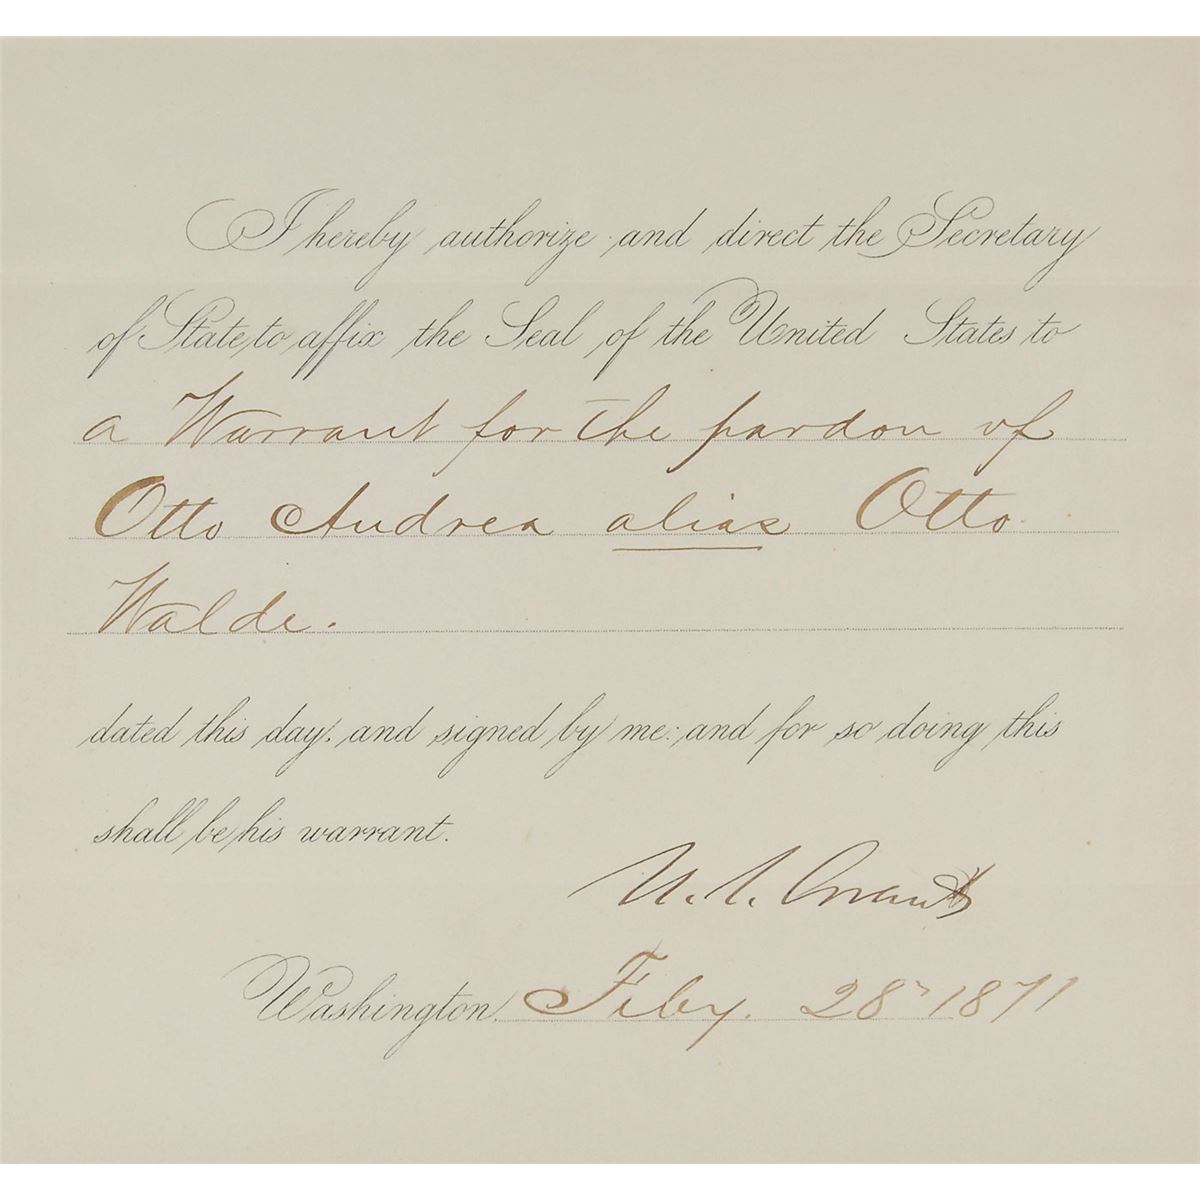 I hereby authorize and direct the Secretary
of State to affix the Seal of the United States to
a Warrant for the pardon of
Otto Andrea alias Otto
Walde.
dated this day, and signed by me: and for so doing this
shall be his warrant.
U. S. Grant
Washington, Feby. 28" 1871